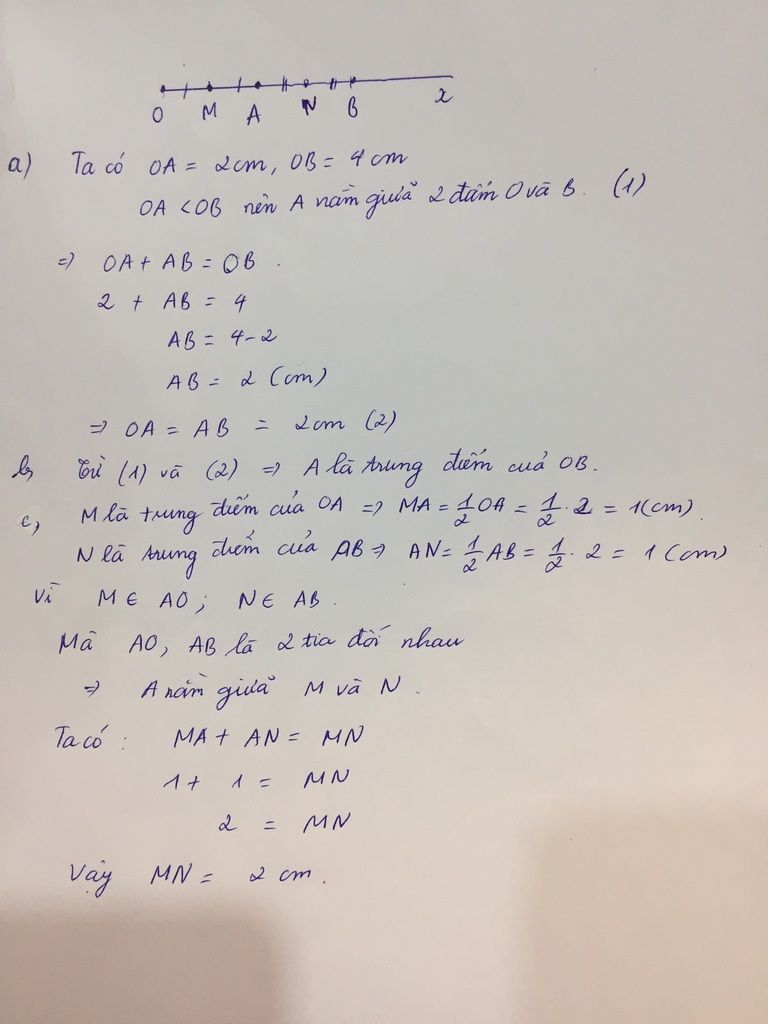 O M A N B x
a) Ta có OA = 2cm, OB = 4cm
OA < OB nên A nằm giữa 2 điểm O và B. (1)
=> OA + AB = OB.
2 + AB = 4
AB = 4-2
AB = 2 (cm)
=> OA = AB = 2cm (2)
b, Từ (1) và (2) => A là trung điểm cuả OB.
c, M là trung điểm của OA => MA = 1/2 OA = 1/2 . 2 = 1(cm).
N là trung điểm của AB => AN = 1/2 AB = 1/2 . 2 = 1 (cm)
Vì M ∈ AO; N ∈ AB.
Mà AO, AB là 2 tia đối nhau
=> A nằm giữa M và N.
Ta có: MA + AN = MN
1 + 1 = MN
2 = MN
Vậy MN = 2 cm.